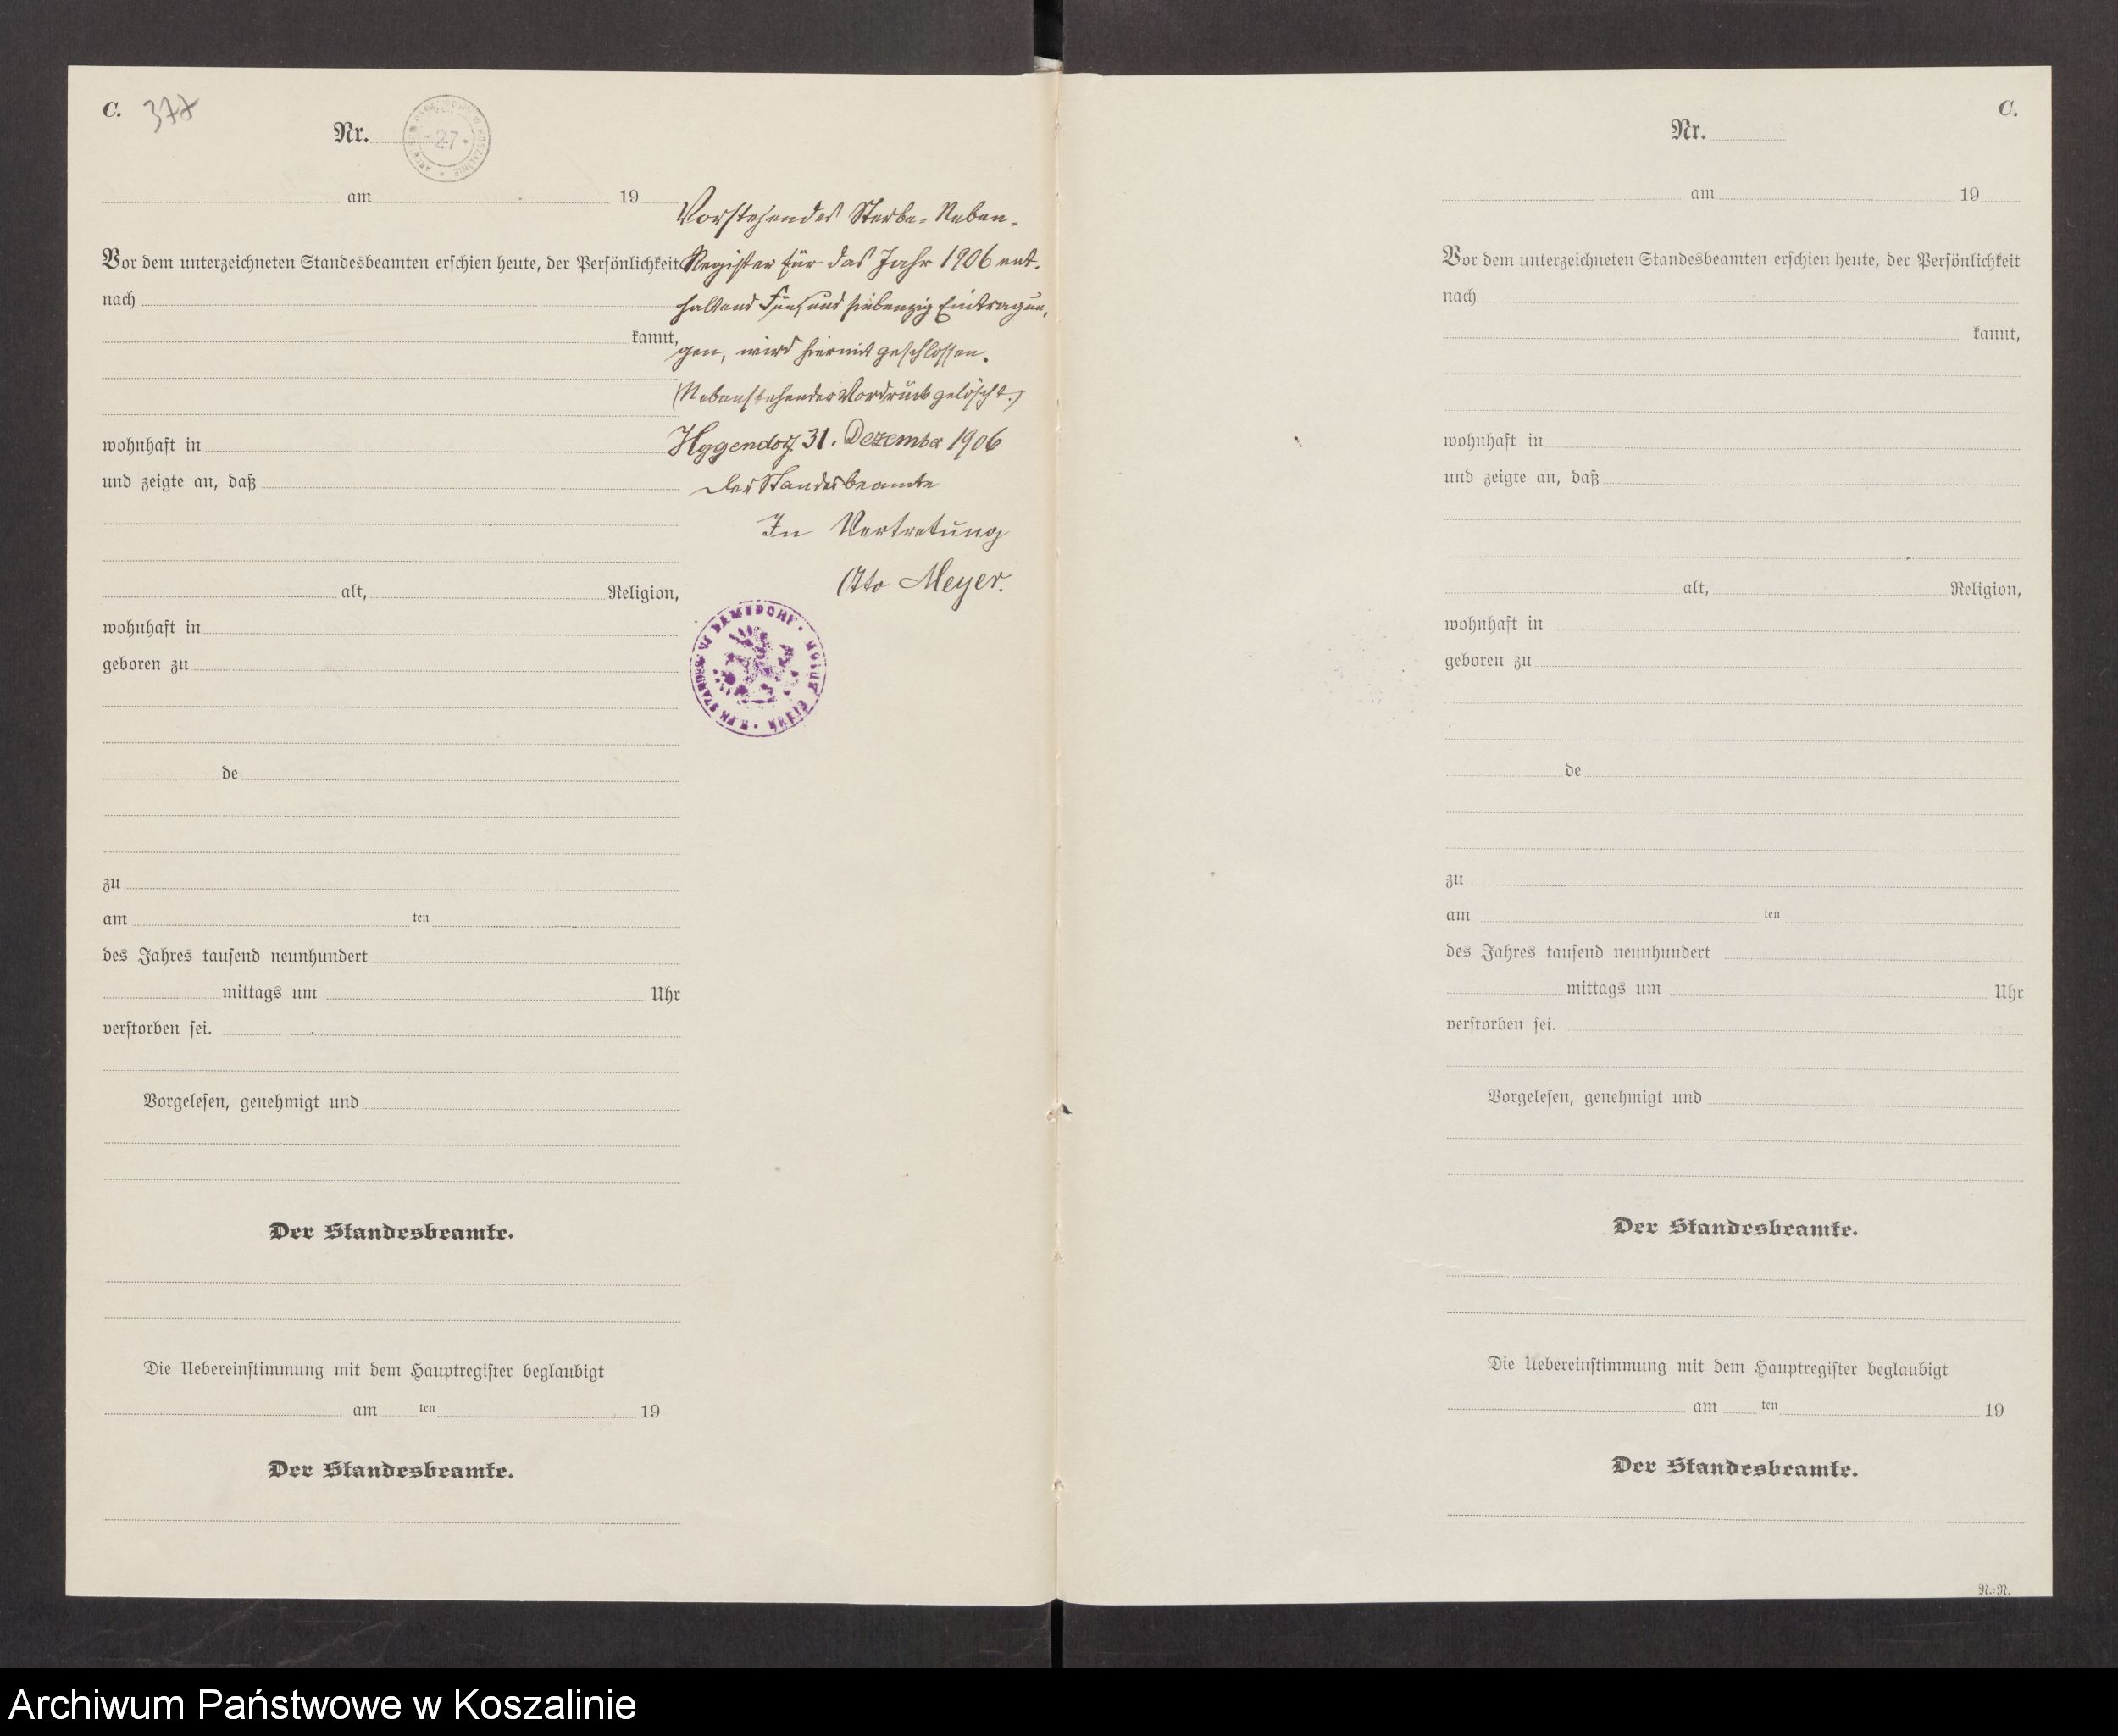 C. 377
Nr.
27
am 19
Vor dem unterzeichneten Standesbeamten erschien heute, der Persönlichkeit
nach
kannt,
wohnhaft in
und zeigte an, daß
alt, Religion,
wohnhaft in
geboren zu
de
zu
am ten
des Jahres tausend neunhundert
mittags um Uhr
verstorben sei.
Vorgelesen, genehmigt und
Der Standesbeamte.
Die Uebereinstimmung mit dem Hauptregister beglaubigt
am ten 19
Der Standesbeamte.
Vorstehendes Sterbe-Neben-
Register für das Jahr 1906 ent-
haltend Fünf und siebenzig Eintragun-
gen, wird hiermit geschlossen.
(Nebenstehender Vordruck gelöscht.)
31. Dezember 1906
Der Standesbeamte
In Vertretung
Otto Meyer.
C.
Nr.
am 19
Vor dem unterzeichneten Standesbeamten erschien heute, der Persönlichkeit
nach
kannt,
wohnhaft in
und zeigte an, daß
alt, Religion,
wohnhaft in
geboren zu
de
zu
am ten
des Jahres tausend neunhundert
mittags um Uhr
verstorben sei.
Vorgelesen, genehmigt und
Der Standesbeamte.
Die Uebereinstimmung mit dem Hauptregister beglaubigt
am ten 19
Der Standesbeamte.
N.=R.
Archiwum Państwowe w Koszalinie